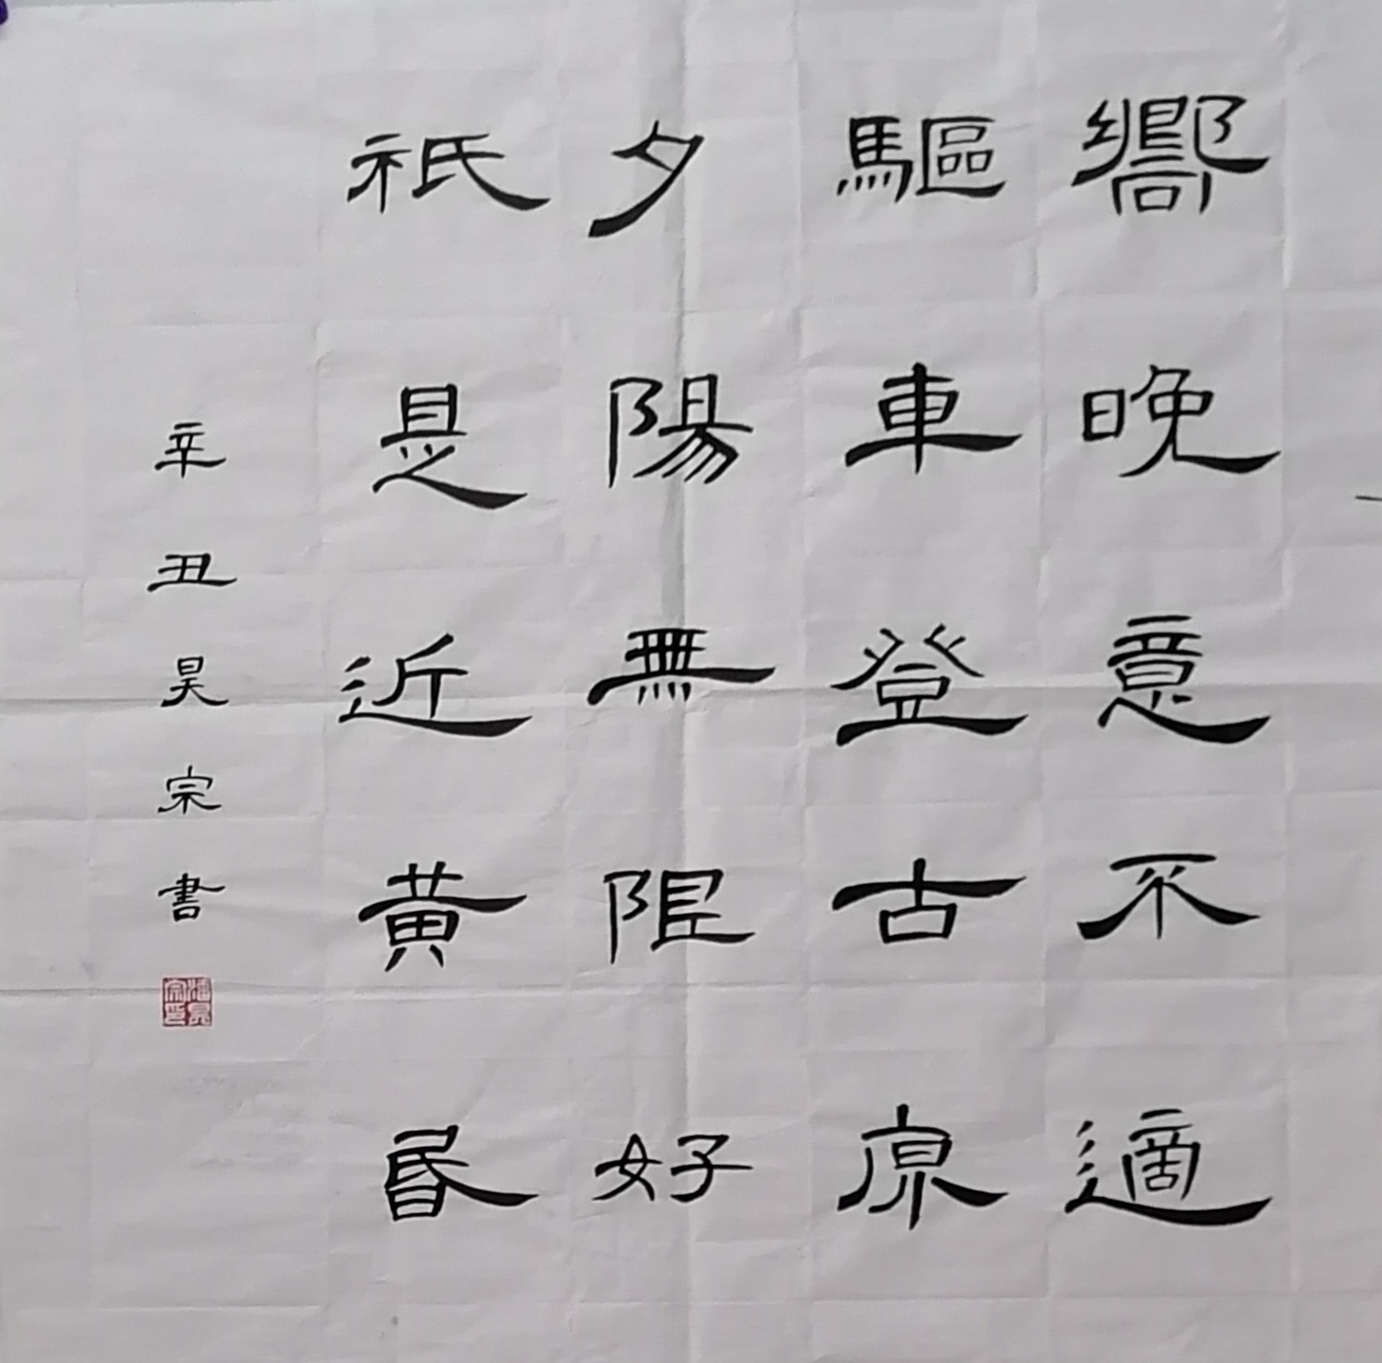 嚮晚意不適
驅車登古原
夕陽無限好
祇是近黃昏
辛丑昊宗書